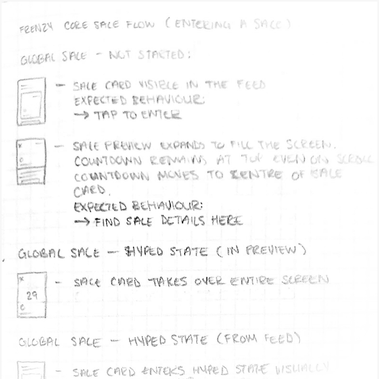 FRENZY CORE SALE FLOW (ENTERING A SALE)
GLOBAL SALE - NOT STARTED:
- SALE CARD VISIBLE IN THE FEED
EXPECTED BEHAVIOUR:
→ TAP TO ENTER
- SALE PREVIEW EXPANDS TO FILL THE SCREEN.
COUNTDOWN REMAINS AT TOP EVEN ON SCROLL
COUNTDOWN MOVES TO CENTRE OF SALE
CARD.
EXPECTED BEHAVIOUR:
→ FIND SALE DETAILS HERE
GLOBAL SALE - HYPED STATE (IN PREVIEW)
X
29
- SALE CARD TAKES OVER ENTIRE SCREEN
GLOBAL SALE - HYPED STATE (FROM FEED)
- SALE CARD ENTERS HYPED STATE VISUALLY